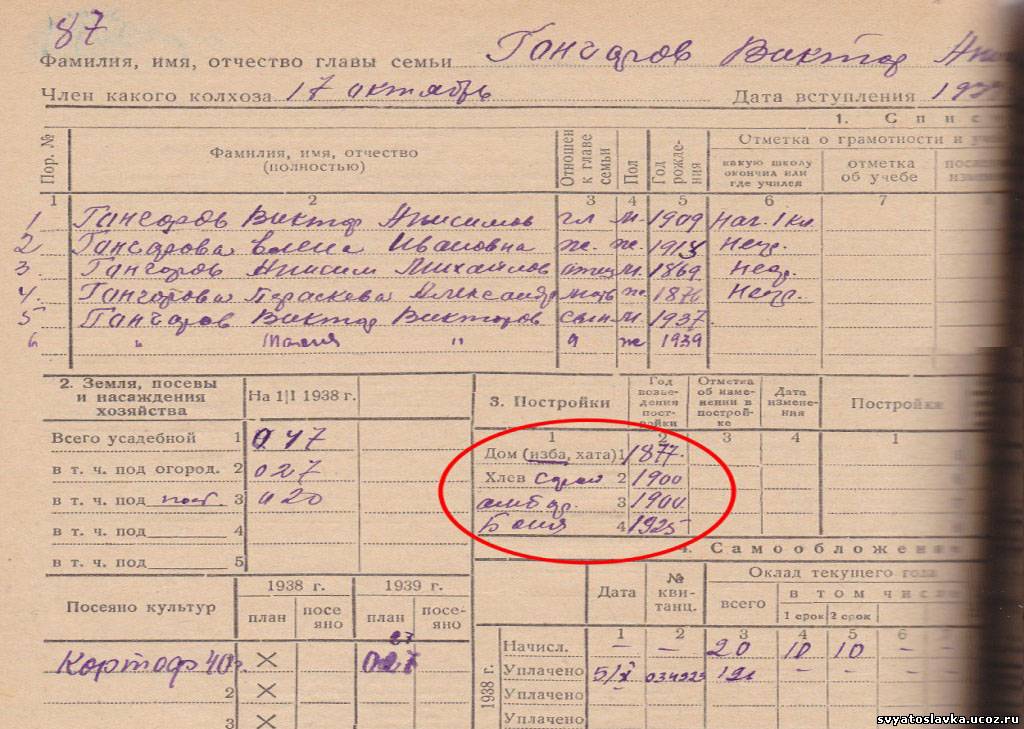 87
Фамилия, имя, отчество главы семьи Гончаров Виктор
Член какого колхоза 17 октябрь Дата вступления
1. Спис
Пор. № Фамилия, имя, отчество (полностью) Отношен. к главе семьи Пол Год рождения Отметка о грамотности и
какую школу окончил или где учился отметка об учебе
1 2 3 4 5 6 7
1 Гончаров Виктор Анисимов гл м. 1909 Нач. 1 кл.
2 Гончарова Елена Ивановна ж. ж. 1913 Негр.
3. Гончаров Анисим Михайлов отец м. 1869 Негр.
4. Гончарова Параскева Александр мать ж 1876 Негр.
5 Гончаров Виктор Викторов сын м. 1937
6 " Мария " ж 1939
2. Земля, посевы и насаждения хозяйства На 1|I 1938 г.
Всего усадебной 1 0 47
в т. ч. под огород. 2 0 27
в т. ч. под пост. 3 0 20
в т. ч. под 4
в т. ч. под 5
3. Постройки Год возведения постройки Отметка об изменении в постройке Дата изменения Постройки
1 2 3 4 1
Дом (изба, хата) 1 1877
Хлев Сарай 2 1900
амбар 3 1900
Баня 4 1925
Посеяно культур 1938 г. 1939 г.
план посеяно план посеяно
Картоф 40г. 27
2
3
4. Самообложение
Дата № квитанц. Оклад текущего года
всего в том числе
1 срок 2 срок
1 2 3 4 5 6
1938 г.
Начисл. — — 20 10 10 —
Уплачено 5/X 034923 — — —
Уплачено
Уплачено
svyatoslavka.ucoz.ru